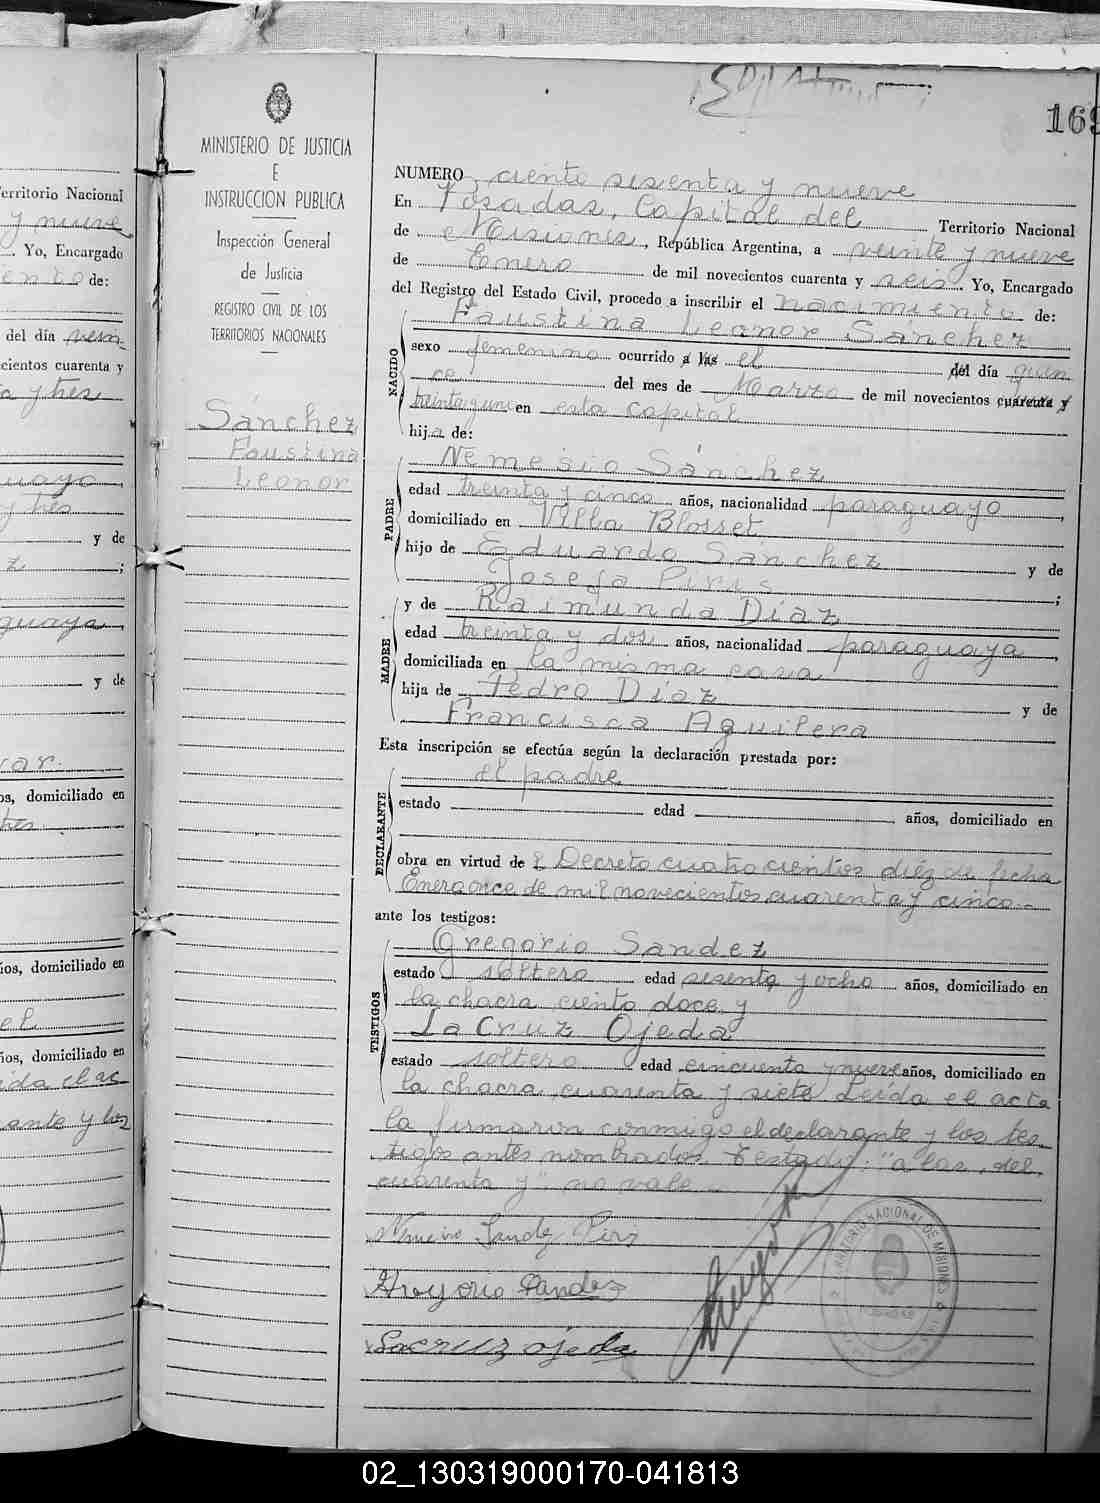 169
MINISTERIO DE JUSTICIA
E
INSTRUCCION PUBLICA
Inspección General
de Justicia
REGISTRO CIVIL DE LOS
TERRITORIOS NACIONALES
Sánchez
Faustina
Leonor
NUMERO ciento sesenta y nueve
En Posadas, Capital del Territorio Nacional
de Misiones, República Argentina, a veinte y nueve
de Enero de mil novecientos cuarenta y seis Yo, Encargado
del Registro del Estado Civil, procedo a inscribir el nacimiento de:
Faustina Leonor Sánchez
NACIDO
sexo femenino ocurrido a las el del día quin
ce del mes de Marzo de mil novecientos cuarenta y
treinta y uno en esta capital
hija de:
PADRE
Nemesio Sánchez
edad treinta y cinco años, nacionalidad paraguayo,
domiciliado en Villa Blosset
hijo de Eduardo Sánchez y de
Josefa Piris;
MADRE
y de Raimunda Díaz
edad treinta y dos años, nacionalidad paraguaya,
domiciliada en la misma casa
hija de Pedro Díaz y de
Francisca Aguilera
Esta inscripción se efectúa según la declaración prestada por:
DECLARANTE
el padre
estado edad años, domiciliado en
obra en virtud de l Decreto cuatrocientos diéz de fecha
Enero once de mil novecientos cuarenta y cinco.-
ante los testigos:
TESTIGOS
Gregorio Sandez
estado soltero edad sesenta y ocho años, domiciliado en
la chacra ciento doce y
La Cruz Ojeda
estado soltero edad cincuenta y nueve años, domiciliado en
la chacra cuarenta y siete Leida el acta
la firmaron conmigo el declarante y los tes
tigos antes nombrados. Testado: "a las, del,
cuarenta y" no vale.-
Gregorio Sandes
Lacruz ojeda
erritorio Nacional
y nueve
Yo, Encargado
iento de:
del día vein
cientos cuarenta y
a y tres
uayo,
y tres
y de
z;
guaya
y de
var.
os, domiciliado en
tres.
ños, domiciliado en
el
ños, domiciliado en
ida el ac
ante y los
02_130319000170-041813